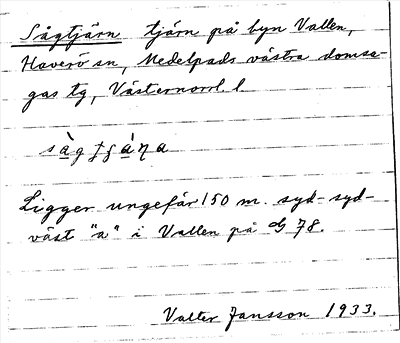 Sågtjärn tjärn på byn Vallen,
Haverö sn, Medelpads västra domsa-
gas tg, Västernorrl. l.
Ligger ungefär 150 m. syd-syd-
väst "a" i Vallen på G 78.
Valter Jansson 1933.